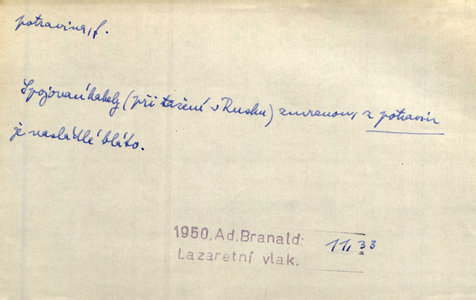 potravina, f.
Spojovaní kabely (při tažení v Rusku) zmrznou, z potravin
je nasládlé bláto.
1950, Ad. Branald:
Lazaretní vlak.